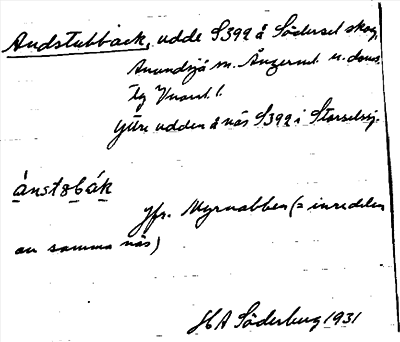 Andstubback, udde S392 å Södersel skog,
Anundsjö sn. Ångerml. n. doms.
Yttre udden å näs S392 i Storselsj.
ánstɞbák
Jfr. Myrnabben (= inredelen
av samma näs)
HA Söderberg 1931